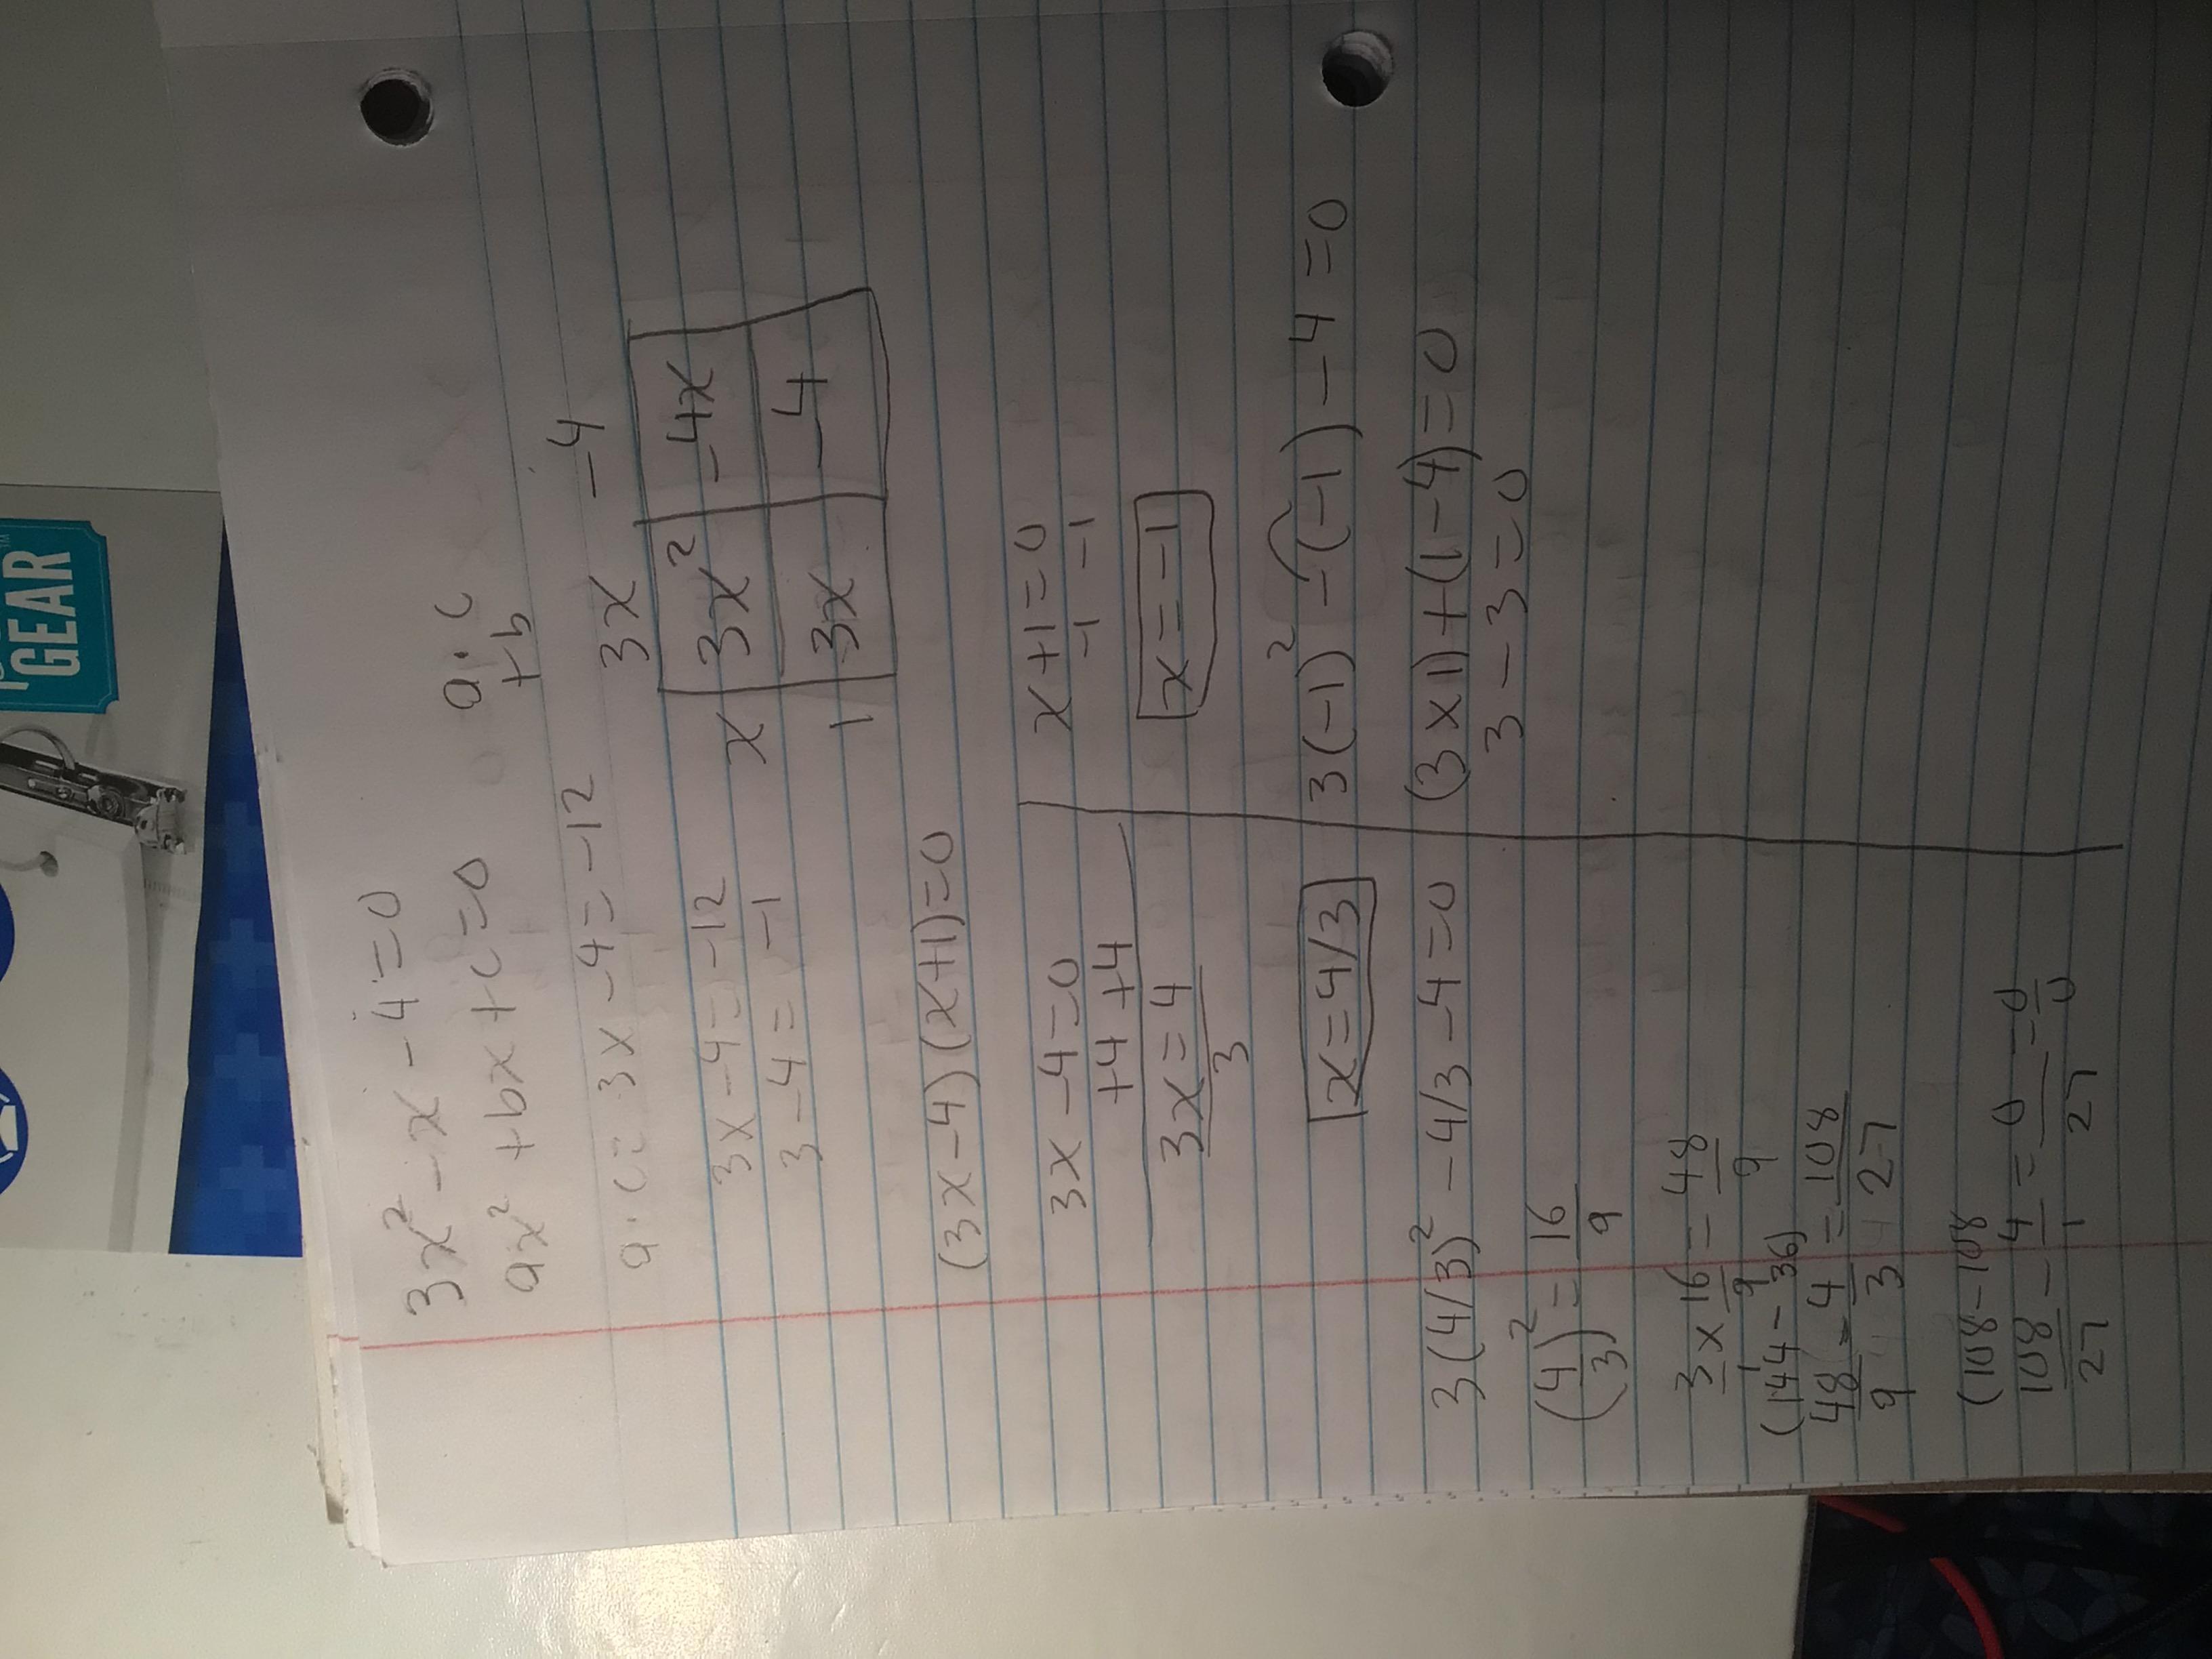 GEAR
3x² - x - 4 = 0
ax² + bx + c = 0
a · c
+b
a · c = 3 x -4 = -12
3 x -4 = -12
3 - 4 = -1
3x -4
x 3x² -4x
1 3x -4
(3x-4)(x+1)=0
3x - 4 = 0
+4 +4
3x = 4
3
x = 4/3
3(4/3)² - 4/3 - 4 = 0
(4/3)² = 16/9
3/1 x 16/9 = 48/9
(144 - 36)
48/9 - 4/3 = 108/27
(108 - 108
108/27 - 4/1 = 0/27 = 0/0
x + 1 = 0
-1 -1
x = -1
3(-1)² - (-1) - 4 = 0
(3 x 1) + (1 - 4) = 0
3 - 3 = 0